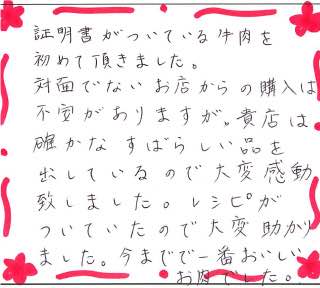 証明書がついている牛肉を
初めて頂きました。
対面でないお店からの購入は
不安がありますが。貴店は
確かなすばらしい品を
出しているので大変感動
致しました。レシピが
ついていたので大変助かり
ました。今までで一番おいしい
お肉でした。